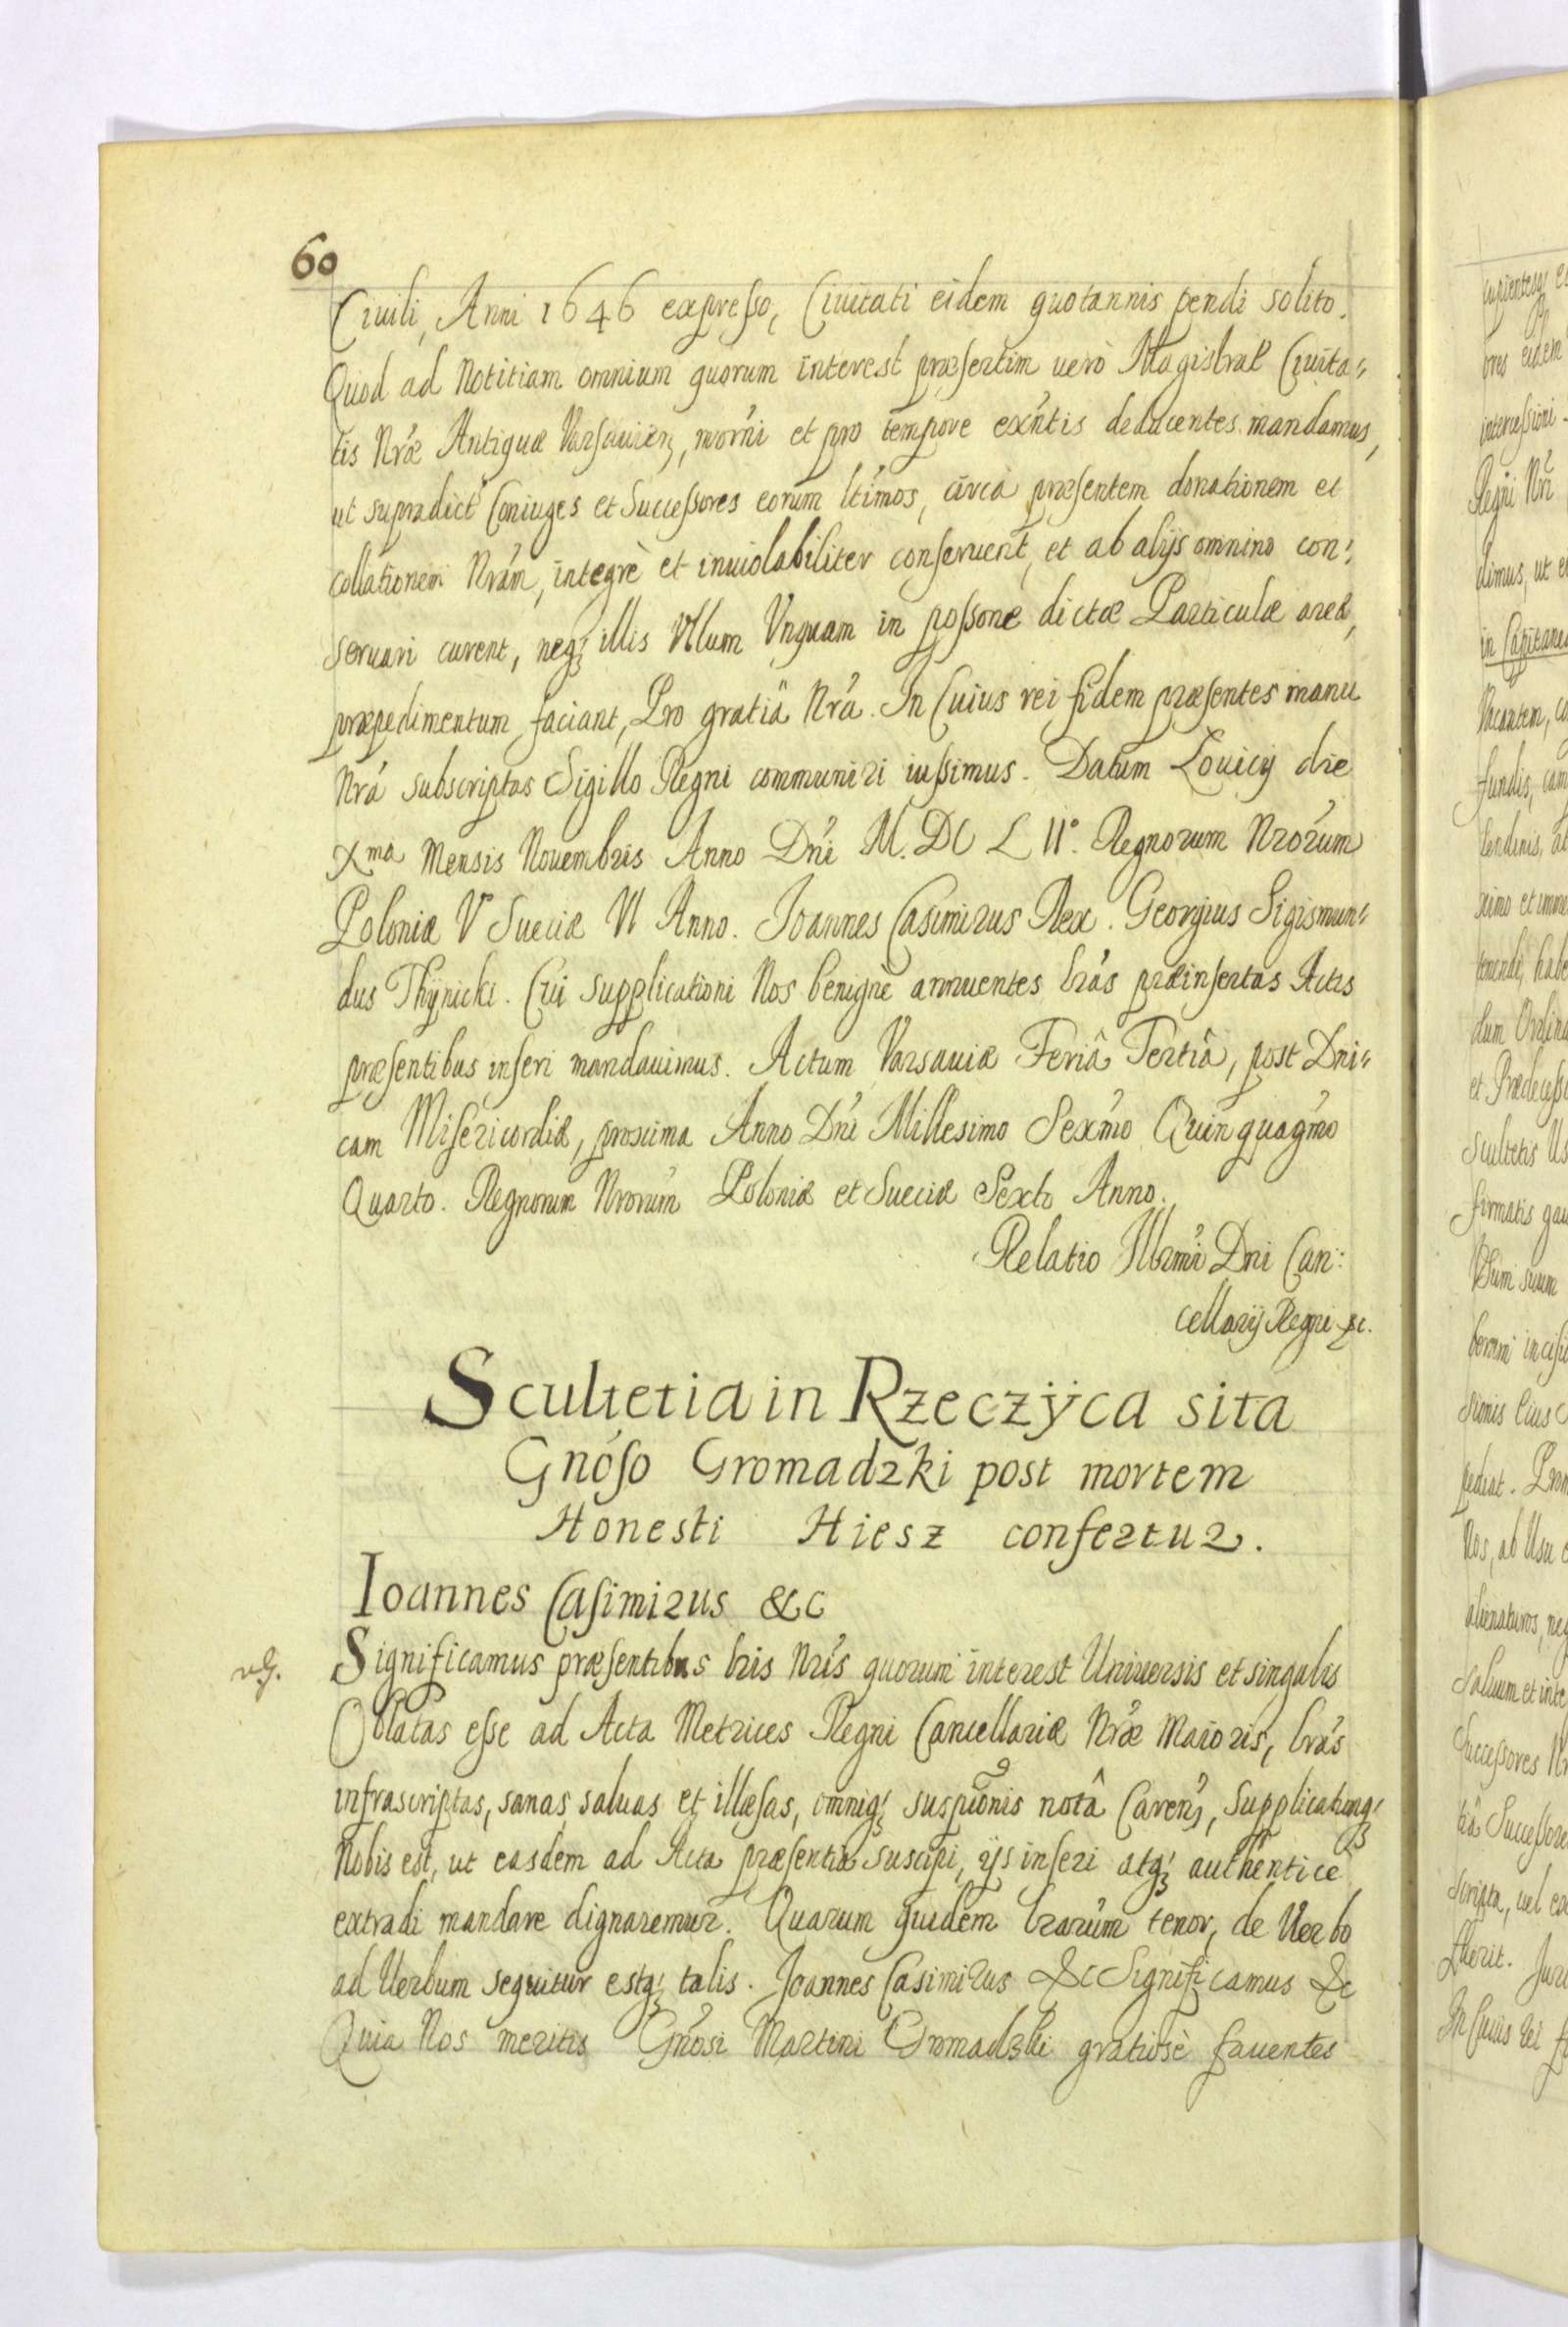 60
Civili, Anni 1646 expresso, Civitati eidem quotannis pendi solito.
Quod ad Notitiam omnium quorum interest præsertim verò Magistrat Civita=
tis Nræ Antiquæ Varsavien, morni et pro tempore exntis deducentes mandamus,
ut supradict Coniuges et Successores eorum ltimos, circa præsentem donationem et
collationem Nram, integrè et inviolabiliter conservent, et ab alijs omnino con=
servari curent, neq illis Ullum Unquam in possone dictæ Particulæ areæ,
præpedimentum faciant, Pro gratiâ Nra. In Cuius rei fidem præsentes manu
Nra subscriptas Sigillo Regni communiri iussimus. Datum Lovicij die
Xma Mensis Novembris Anno Dni M.DC L IIo. Regnorum Nrorum
Poloniæ V Sueciæ VI Anno. Joannes Casimirus Rex. Georgius Sigismun=
dus Thÿnicki. Cui supplicationi Nos benignè annuentes lras præinsertas Actis
præsentibus inseri mandavimus. Actum Varsaviæ Feriâ Tertiâ, post Dni=
cam Misericordiæ, proxima Anno Dni Millesimo Sexmo Quinquagmo
Quarto. Regnorum Nrorum Poloniæ et Sueciæ Sexto Anno.
Relatio Illrmi Dni Can:
cellarij Regni &c.
Scultetia in Rzeczÿca sita
Gnoso Gromadzki post mortem
Honesti Hiesz confertur.
Ioannes Casimirus &c
Significamus præsentibus lris Nris quorum interest Universis et singulis
Oblatas esse ad Acta Metrices Regni Cancellariæ Nræ Maioris, lras
infrascriptas, sanas, salvas et illæsas, omniq suspionis notâ Caren, Supplicatumq
Nobis est, ut easdem ad Acta præsentia suscipi, ijs inseri atq authenticè
extradi mandare dignaremur. Quarum quidem lrarum tenor, de Verbo
ad Verbum sequitur estq talis. Joannes Casimirus &c Significamus &c
Quia Nos meritis Gnosi Martini Gromadzki gratiosè faventes